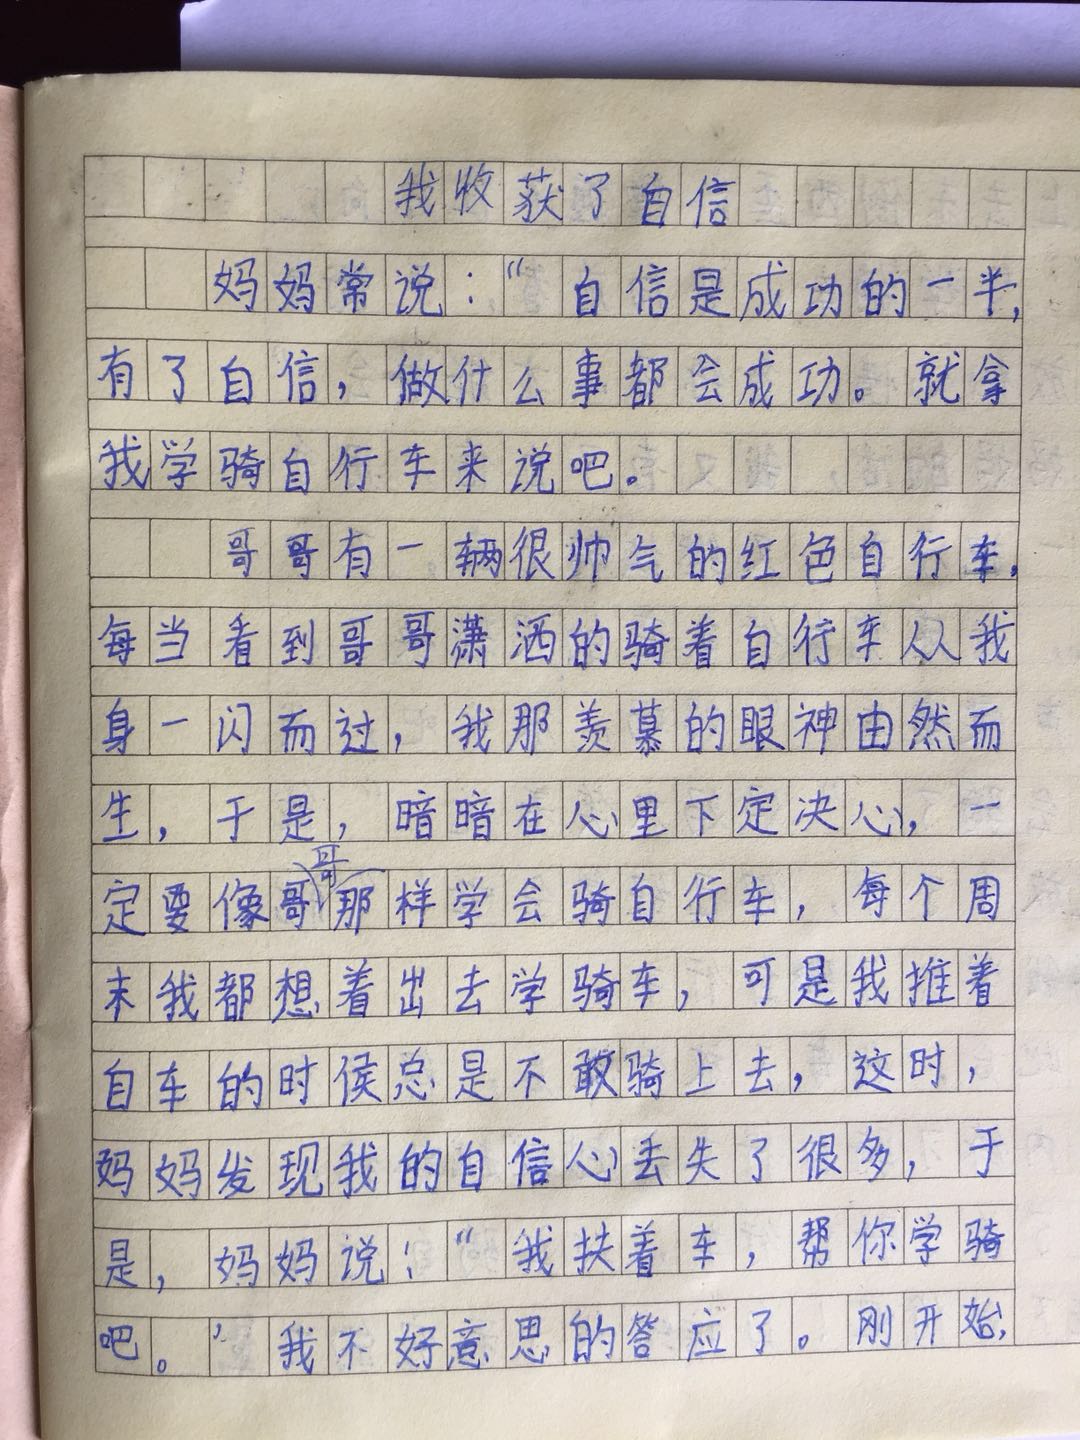 我收获了自信
妈妈常说：“自信是成功的一半，
有了自信，做什么事都会成功。就拿
我学骑自行车来说吧。
哥哥有一辆很帅气的红色自行车，
每当看到哥哥潇洒的骑着自行车从我
身一闪而过，我那羡慕的眼神由然而
生，于是，暗暗在心里下定决心，一
定要像哥哥那样学会骑自行车，每个周
末我都想着出去学骑车，可是我推着
自车的时侯总是不敢骑上去，这时，
妈妈发现我的自信心丢失了很多，于
是，妈妈说：“我扶着车，帮你学骑
吧。”我不好意思的答应了。刚开始，